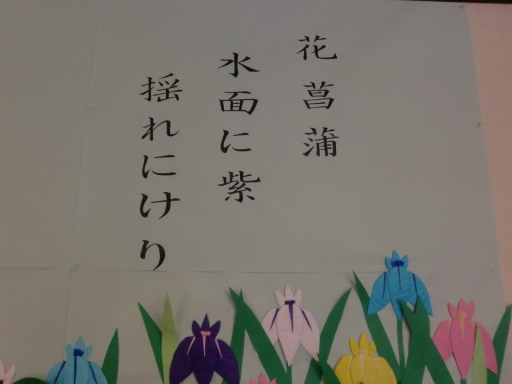 花菖蒲
水面に紫
揺れにけり